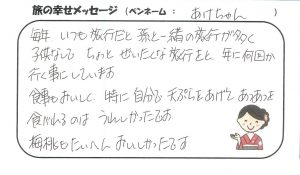 旅の幸せメッセージ (ペンネーム: あけちゃん )
毎年 いつも旅行だと 孫と一緒の旅行が多く
子供なしで ちょっと ぜいたくな旅行をと 年に何回か
行く事にしています
食事もおいしく 特に自分で 天ぷらをあげて あつあつを
食べれるのは うれしかったです
梅桃もたいへん おいしかったです